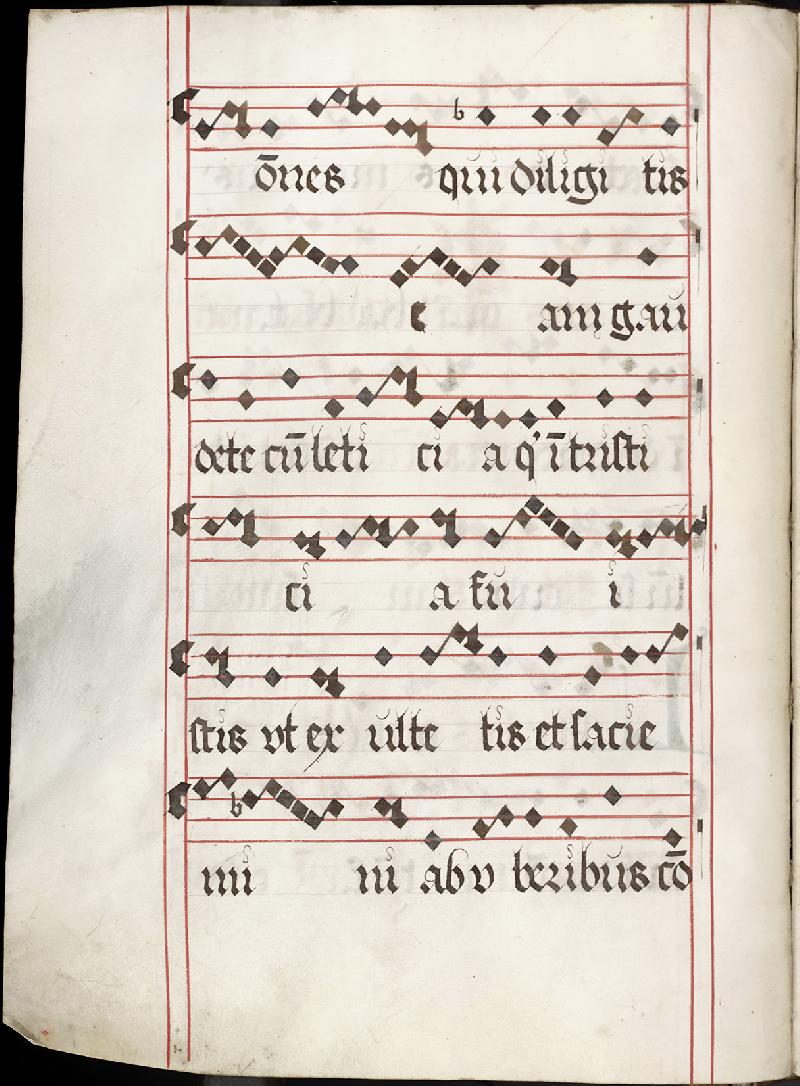 ōnes qui diligi tis
e am gau
dete cū leti ci a q' ī tristi
ci a fu i
stis vt ex ulte tis et sacie
mi ni ab v beribus cō